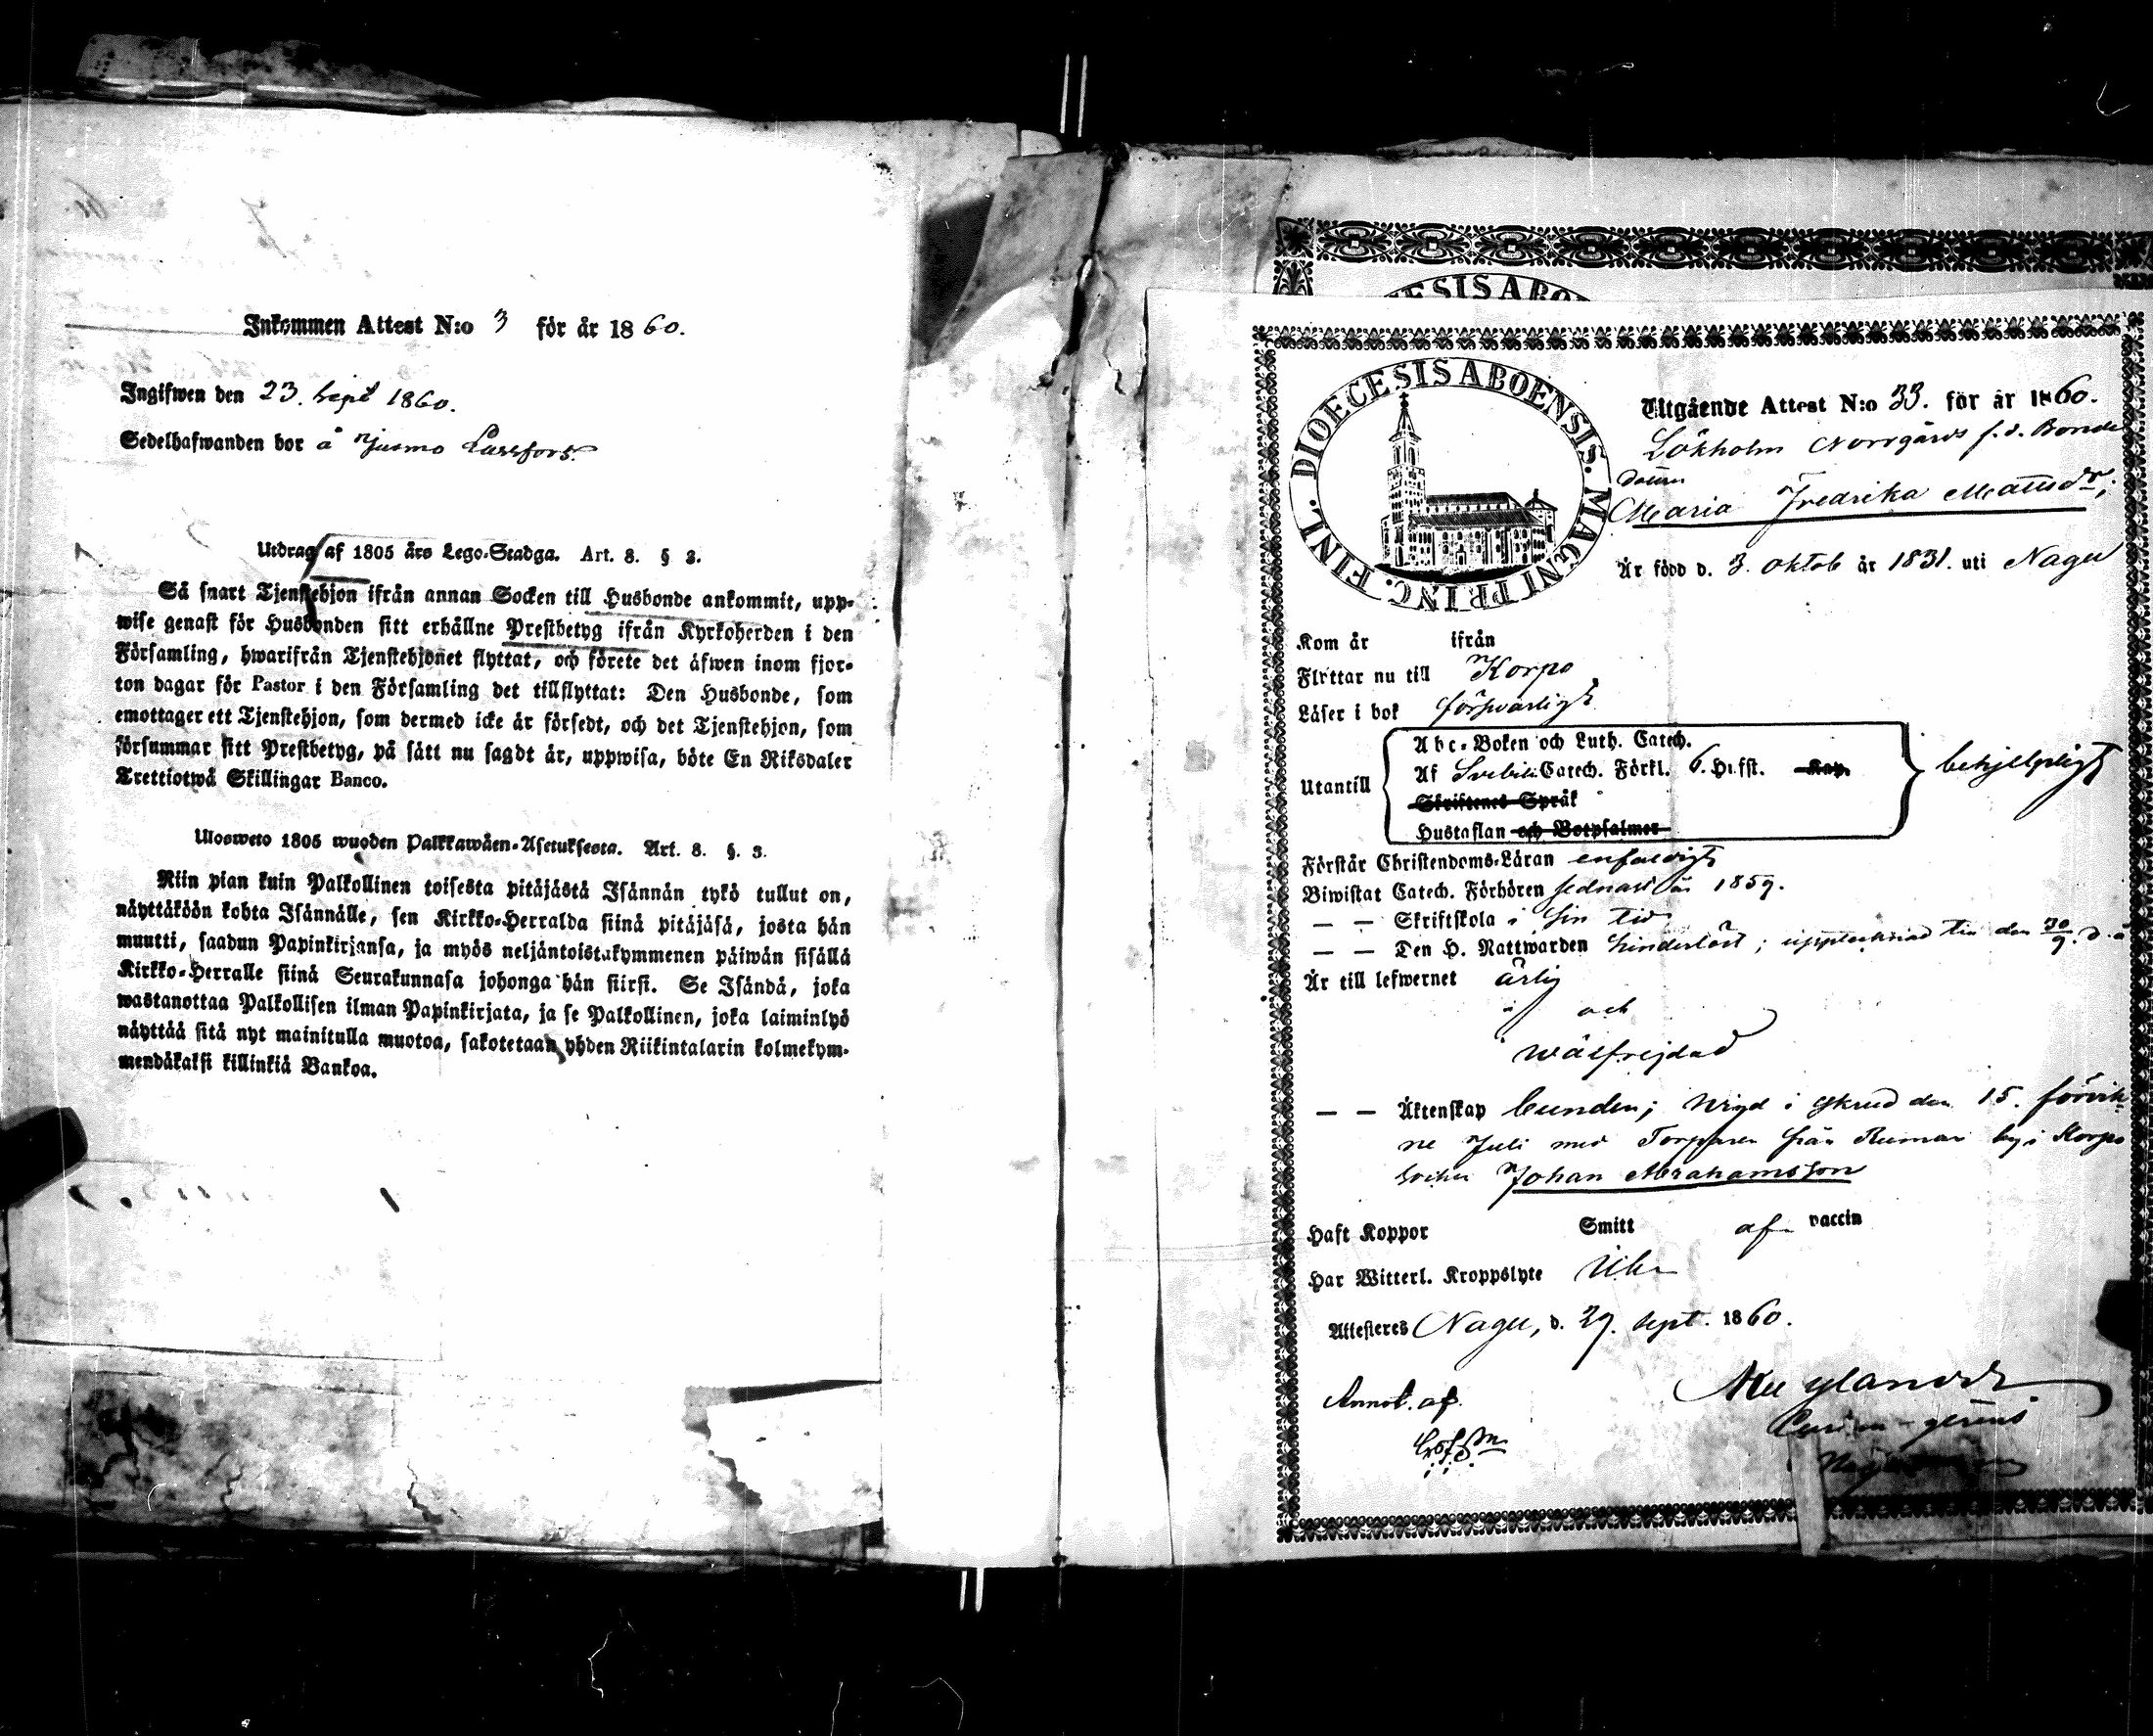 Inkommen Attest N:o 3 för år 1860.
Ingifwen den 23. Sept 1860.
Sedelhafwanden bor å Jurmo
Utdrag af 1805 års Lego-Stadga. Art. 8. § 3.
Så snart Tjenstehjon ifrån annan Socken till Husbonde ankommit, upp-
wise genast för Husbonden sitt erhållne Prestbetyg ifrån Kyrkoherden i den
Församling, hwarifrån Tjenstehjonet flyttat, och förete det äfwen inom fjor-
ton dagar för Pastor i den Församling det tillflyttat: Den Husbonde, som
emottager ett Tjenstehjon, som dermed icke är försedt, och det Tjenstehjon, som
försummar sitt Prestbetyg, på sätt nu sagdt är, uppwisa, böte En Riksdaler
Trettiotwå Skillingar Banco.
Ulosweto 1805 wuoden Palkkawäen-Asetuksesta. Art. 8. §. 3.
Niin pian kuin Palkollinen toisesta pitäjästä Isännän tykö tullut on,
näyttäköön kohta Isännälle, sen Kirkko-Herralda siinä pitäjäsä, josta hän
muutti, saadun Papinkirjansa, ja myös neljäntoistakymmenen päiwän sisällä
Kirkko-Herralle siinä Seurakunnasa johonga hän siirsi. Se Isändä, joka
wastanottaa Palkollisen ilman Papinkirjata, ja se Palkollinen, joka laiminlyö
näyttää sitä nyt mainitulla muotoa, sakotetaan yhden Riikintalarin kolmekym-
mendäkaksi killinkiä Bankoa.
DIOECESIS ABOENSIS. MAGNI PRINC. FINL.
Utgående Attest N:o 33. för år 1860.
Lökholm Norrgårds f. d. Bonde
dottren
Maria Fredrika Mattsdr,
Är född d. 3. Oktob år 1831. uti Nagu
Kom år ifrån
Flyttar nu till Korpo
Läser i bok försvarligt
Utantill
Abc-Boken och Luth. Catech.
Af Svebili Catech. Förkl. 6. H:fst. Kap.
Skriftenes Språk
Hustaflan och Botpsalmer
behjelpligt
Förstår Christendoms-Läran enfaldigt
Biwistat Catech. Förhören sednast år 1859.
— — Skriftskola i sin tid
— — Den H. Nattwarden hinderlöst; upptecknad till den 30/9. d. å
Är till lefwernet ärlig
och
wälfrejdad
— — Äktenskap bunden; Wigd i Skrud den 15. förvik-
ne Juli med Torparen från Rumar by i Korpo
socken Johan Abrahamsson
Haft Koppor Smitt af vaccin
Har Witterl. Kroppslyte
Attesteres Nagu, d. 29. Sept. 1860.
Annot. af.